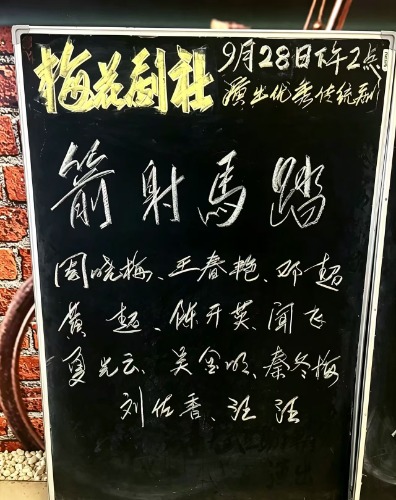 梅花剧社
9月28日下午2点
演出优秀传统剧
箭射馬蹻
周晓梅、王春艳、邓超
黄超、陈开英、闻飞
夏光云、吴金明、秦冬梅
刘佐香、汪汪